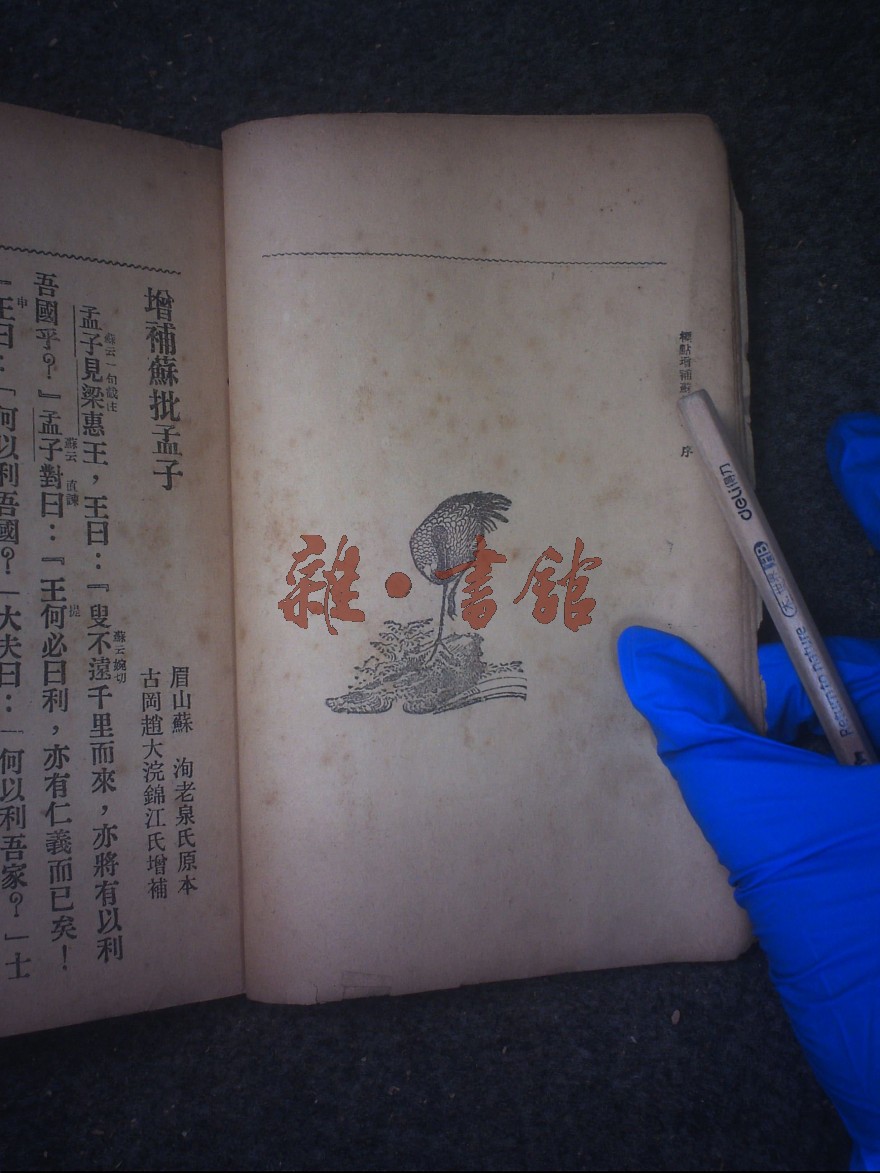 標點增補蘇
序
雜·書館
deli得力
Return to nature
增補蘇批孟子
眉山蘇 洵老泉氏原本
古岡趙大浣錦江氏增補
孟子見梁惠王，王曰：『叟不遠千里而來，亦將有以利
蘇云一句截住
蘇云婉切
吾國乎？』孟子對曰：『王何必曰利，亦有仁義而已矣！
蘇云 直諫
提
王曰：「何以利吾國？」大夫曰：「何以利吾家？」士
申